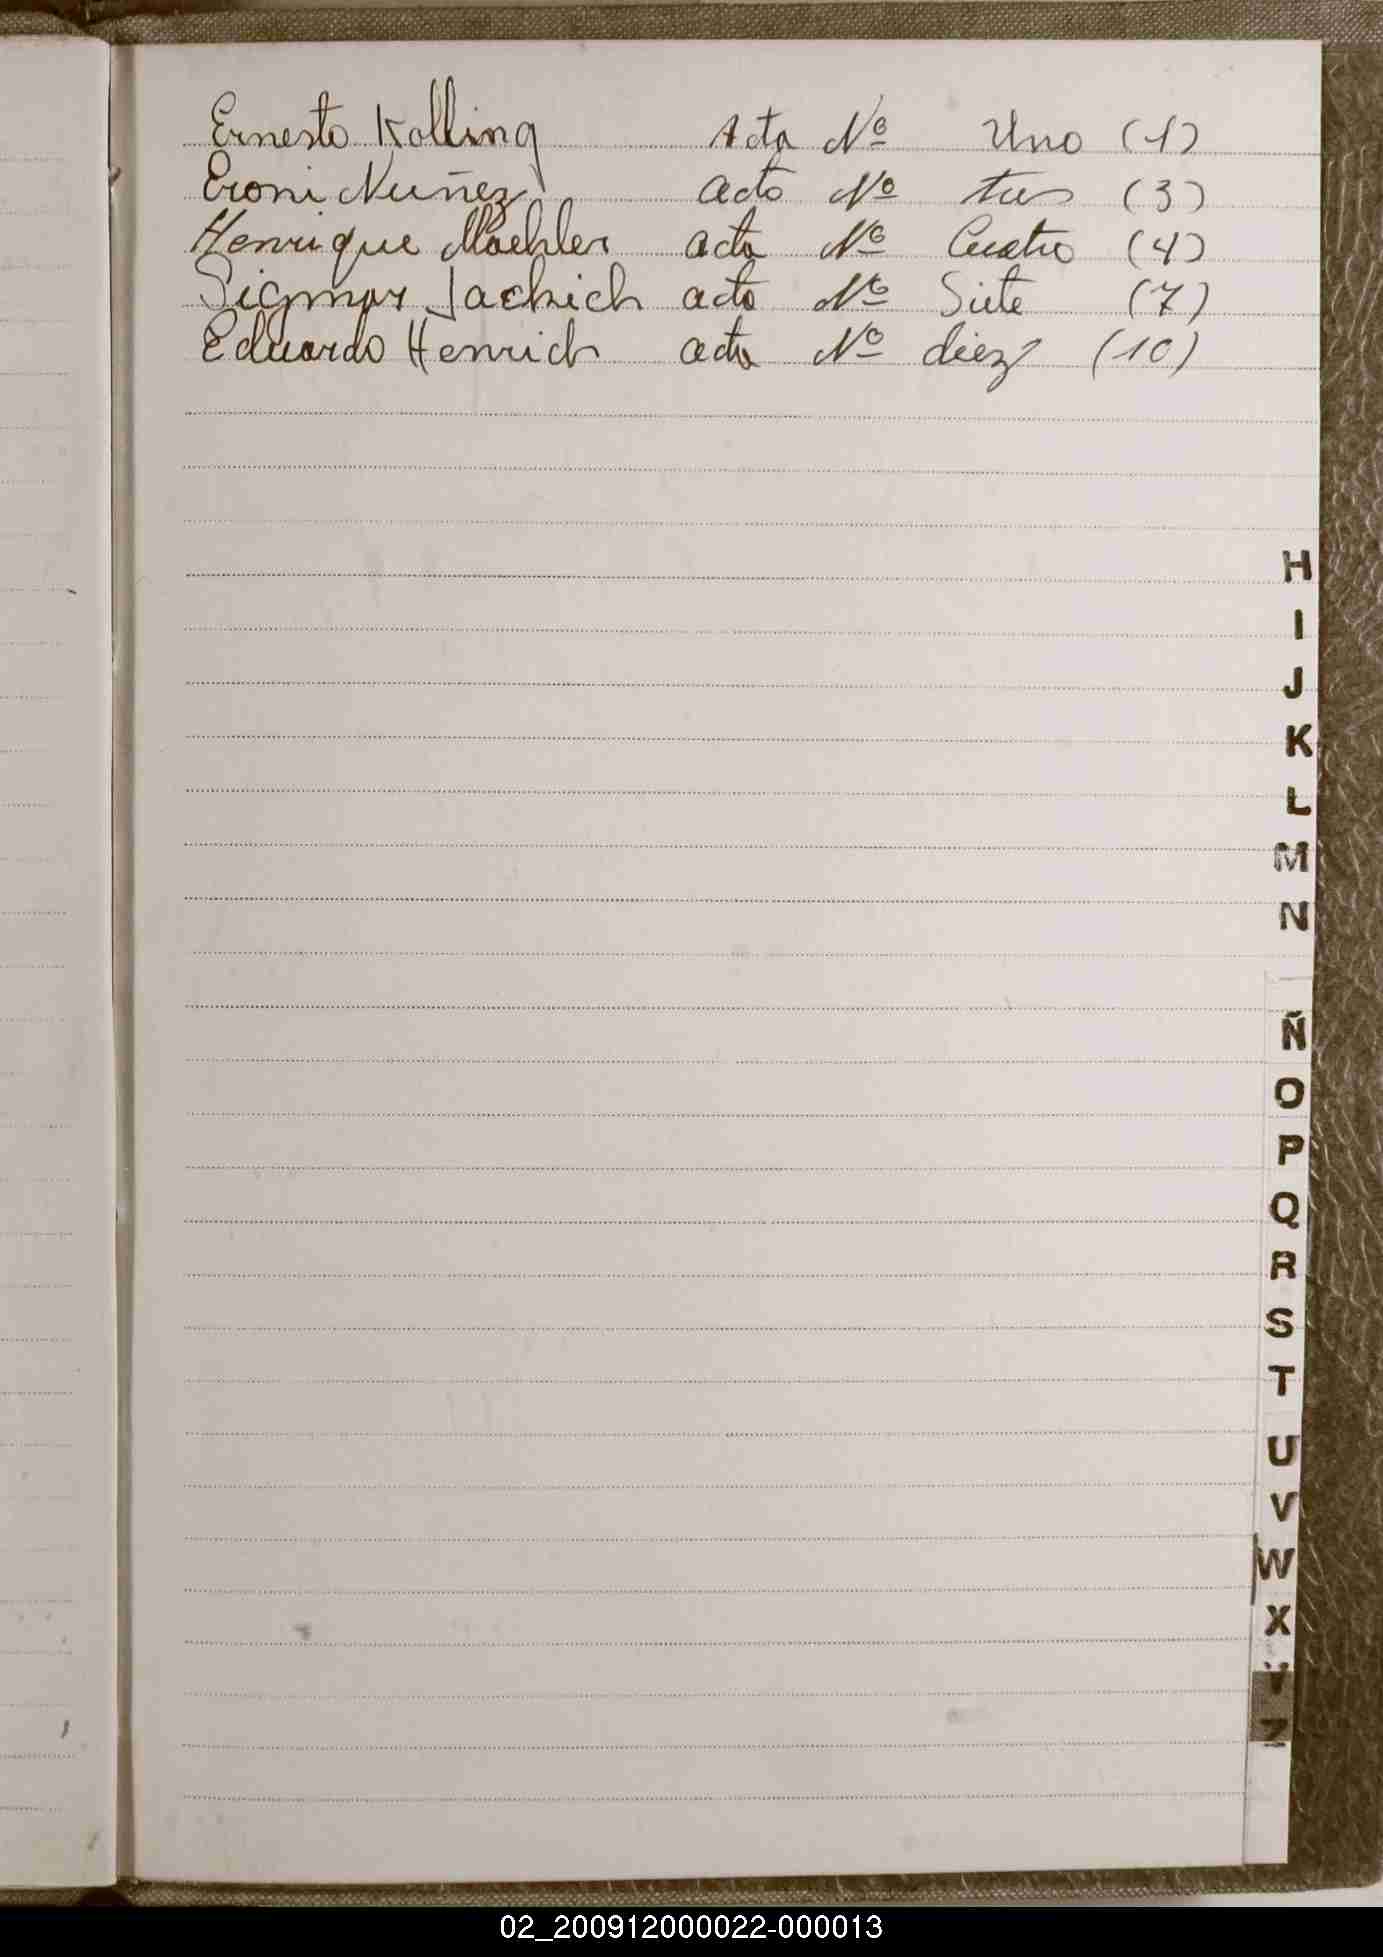 Ernesto Kolling Acta Nº Uno (1)
Eroni Nuñez acta Nº tres (3)
Henrique Maehler acta Nº Cuatro (4)
Sigmar Jackich acta Nº Siete (7)
Eduardo Henrich acta Nº diez (10)
H
I
J
K
L
M
N
Ñ
O
P
Q
R
S
T
U
V
W
X
Y
Z
02_200912000022-000013